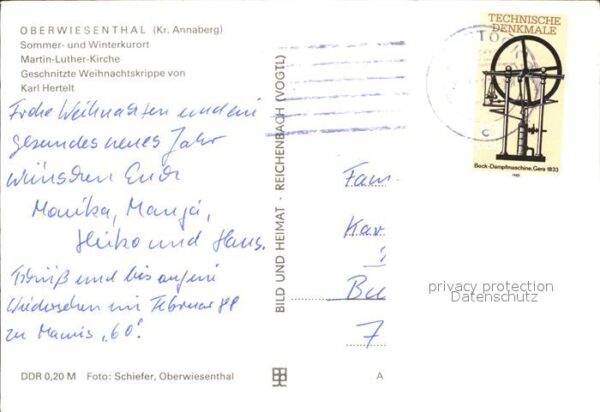 OBERWIESENTHAL (Kr. Annaberg)
Sommer- und Winterkurort
Martin-Luther-Kirche
Geschnitzte Weihnachtskrippe von
Karl Hertelt
Frohe Weihnachten und ein
gesundes neues Jahr
wünschen Euch
Monika, Manja,
Heiko und Hans.
Tschüß und bis auf ein
Wiedersehen im Februar 88
zu Mamis „60".
DDR 0,20 M Foto: Schiefer, Oberwiesenthal
BILD UND HEIMAT · REICHENBACH (VOGTL)
A
TECHNISCHE
DENKMALE
Bock-Dampfmaschine, Gera 1833
1985
Fam.
Kar
Bu
7
privacy protection
Datenschutz